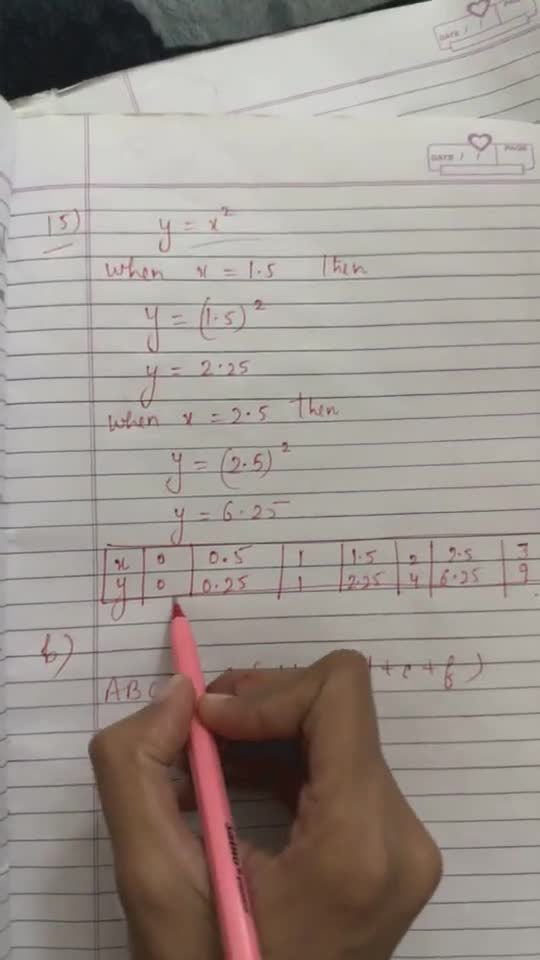 DATE / /
DATE / / PAGE
15) y = x²
when x = 1.5 Then
y = (1.5)²
y = 2.25
when x = 2.5 then
y = (2.5)²
y = 6.25
x 0 0.5 1 1.5 2 2.5 3
y 0 0.25 1 2.25 4 6.25 9
b)
ABC + e + f)